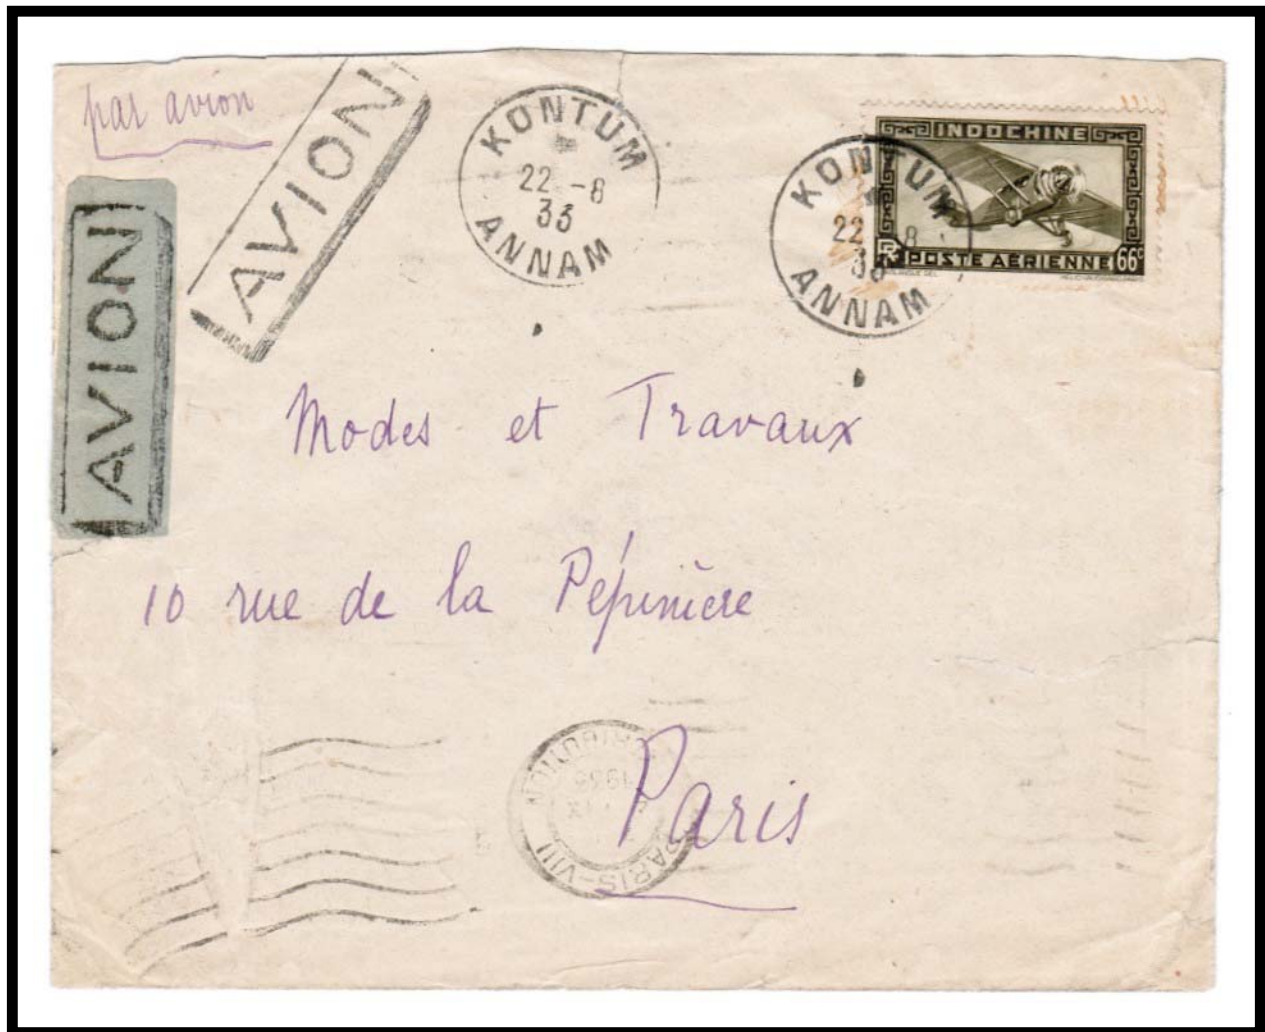 par avion
AVION
AVION
KONTUM
22 -8
33
ANNAM
KONTUM
22 -8
33
ANNAM
INDOCHINE
RF POSTE AÉRIENNE 66c
Modes et Travaux
10 rue de la Pépinière
Paris
PARIS-VIII